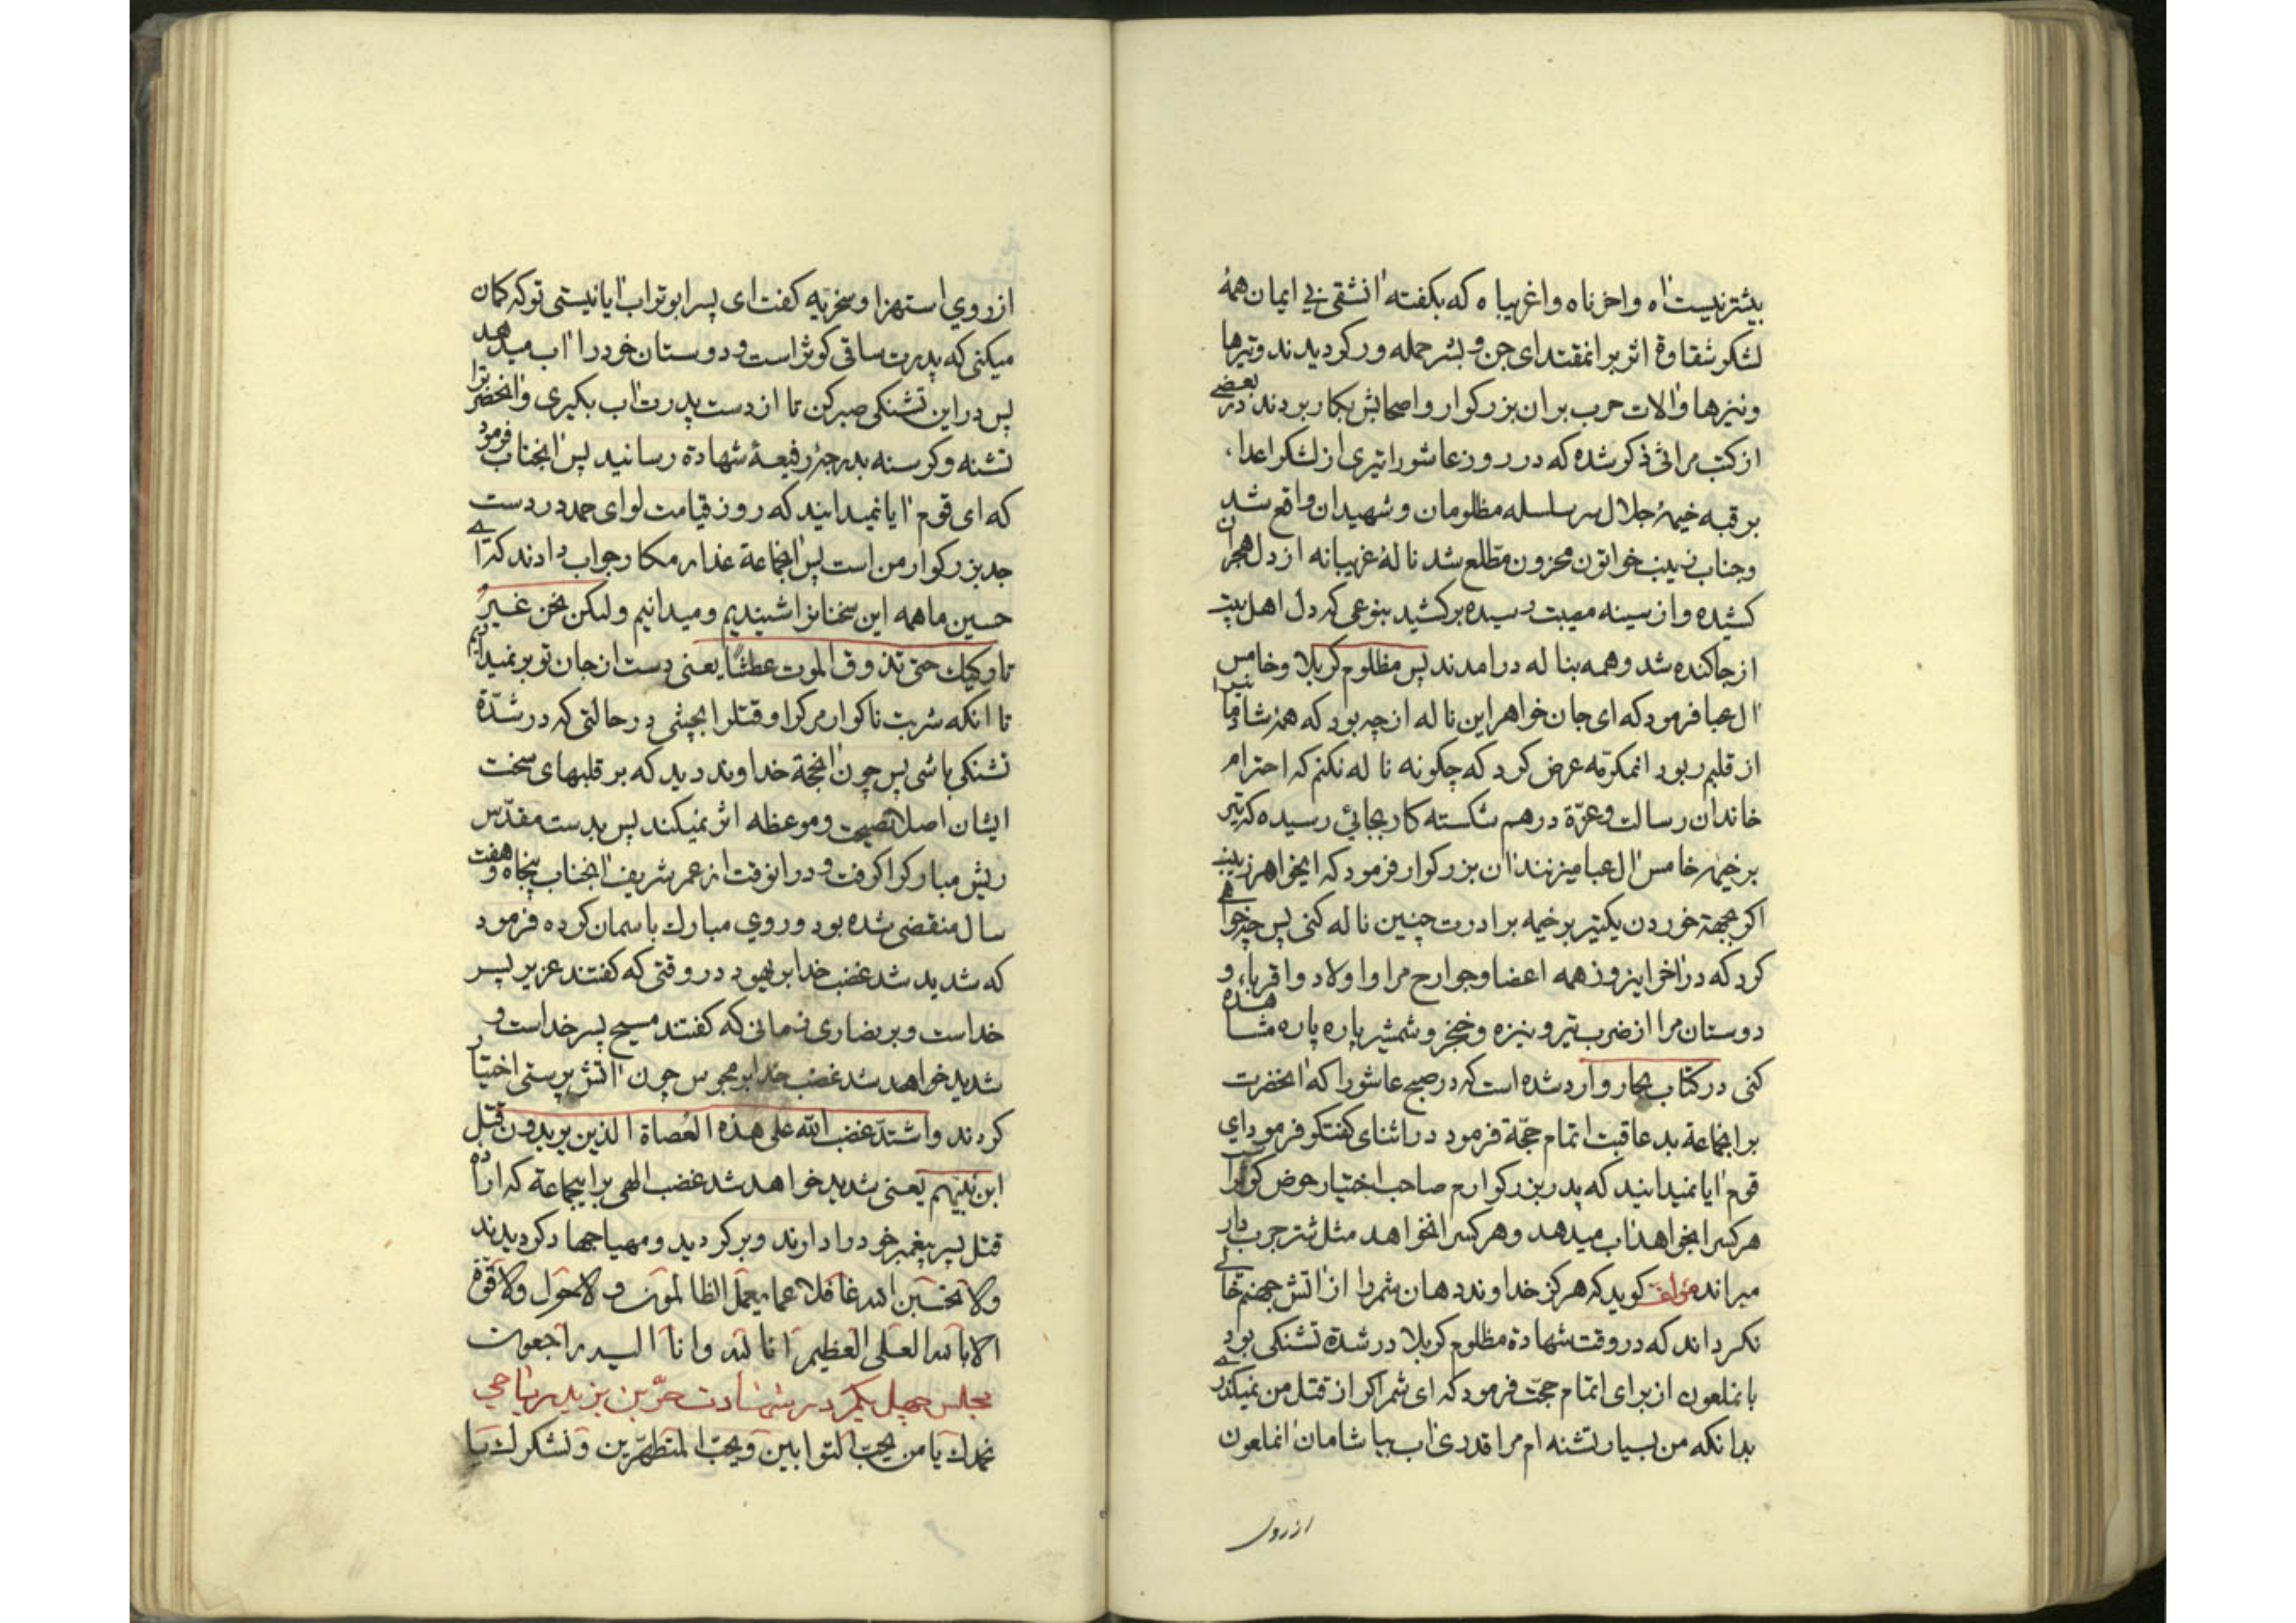 بیشتر نیست آه واحزناه واغریباه که بگفته آنشقی بی ایمان همهٔ
لشکر شقاوة اثر بر آنمقتدای جن و بشر حمله ور گردیدند و تیرها
ونیزها وآلات حرب بر ان بزرکوار واصحابش بکار بردند در بعضی
از کتب مراثی ذکر شده که در روز عاشورا تیری از لشکر اعداء
بر قبه خیمهٔ جلال سر سلسله مظلومان و شهیدان واقع شد
وجناب زینب خواتون محزون مطلع شد نالهٔ غریبانه از دل هجران
کشیده و از سینه مصیبت رسیده برکشید بنوعی که دل اهل بیت
از جا کنده شد و همه بناله درامدند پس مظلوم کربلا وخامس
آل عبا فرمود که ای جان خواهر این ناله از چه بود که همهٔ شما
از قلبم ربود انمکرمه عرض کرد که چکونه ناله نکنم که احترام
خاندان رسالت وعزّة درهم شکسته کار بجائی رسیده که تیر
بر خیمهٔ خامس آل عبا میزنند ان بزرکوار فرمود که ایخواهر زینب
اکر بجهة خوردن یکتیر بر خیمه برادرت چنین ناله کنی پس چه خواهی
کرد که در آخر اینروز همه اعضا وجوارح مرا واولاد واقرباء و
دوستان مرا از ضرب تیر و نیزه و خنجر و شمشیر پاره پاره مشاهده
کنی در کتاب بحار وارد شده است که در صبح عاشورا که آنحضرت
بر انجماعة بد عاقبت اتمام حجّة فرمود در اثنای کفتکو فرمود ای
قوم آیا نمیدانید که پدر بزرکوارم صاحب اختیار حوض کوثر است
هر کسرا بخواهد آب میدهد و هر کسرا نخواهد مثل شتر جرب دار
میراند مؤلف کوید که هرکز خداوند دهان شمر را از آتش جهنم خالی
نکرداند که در وقت شهادة مظلوم کربلا در شدة تشنکی بود
بانملعون از برای اتمام حجّت فرمود که ای شمر اکر از قتل من نمیکذری
بدانکه من بسیار تشنه ام مرا قدری آب بیاشامان انملعون
از روی
از روی استهزا وسخریه کفت ای پسر ابوتراب آیا نیستی تو که کمان
میکنی که پدرت ساقی کوثر است و دوستان خود را آب میدهد
پس در این تشنکی صبر کن تا از دست پدرت آب بکیری وآنحضرت را
تشنه وکرسنه بدرجهٔ رفیعهٔ شهادة رسانید پس آنجناب فرمود
که ای قوم آیا نمیدانید که روز قیامت لوای حمد در دست
جد بزرکوار من است پس آنجماعة غدار مکار جواب دادند که ای
حسین ما همه این سخنانرا شنیدیم و میدانیم ولکن نحن غیر
تارکیك حتی تذوق الموت عطشاً یعنی دست از جان تو بر نمیداریم
تا انکه شربت ناکوار مرك را وقتلرا بچشی در حالتی که در شدّة
تشنکی باشی پس چون آنحجة خداوند دید که بر قلبهای سخت
ایشان اصلا نصیحت وموعظه اثر نمیکند پس بدست مقدّس
ریش مبارکرا کرفت و در انوقت از عمر شریف آنجناب پنجاه وهفت
سال منقضی شده بود وروی مبارك باسمان کرده فرمود
که شدید شد غضب خدا بر یهود در وقتی که کفتند عزیر پسر
خداست و بر نصاری زمانی که کفتند مسیح پسر خداست و
شدید خواهد شد غضب خدا بر مجوس چون آتش پرستی اختیار
کردند واشتدّ غضب الله علی هذه العُصاة الذین یریدون قتل
ابن نبیهم یعنی شدید خواهد شد غضب الهی بر اینجماعة که اراده
قتل پسر پیغمبر خود را دارند و برکردید ومهیا جهاد کردیدند
ولا تحسبن الله غافلا عما یعمل الظالمون و لا حول ولا قوّة
الا بالله العلی العظیم انا لله وانا الیه راجعون
مجلس چهل یکم در شهادت حرّ بن یزید ریاحی
نحمدك یا من یحبّ التوابین ویحبّ المتطهّرین ونشکرك یا